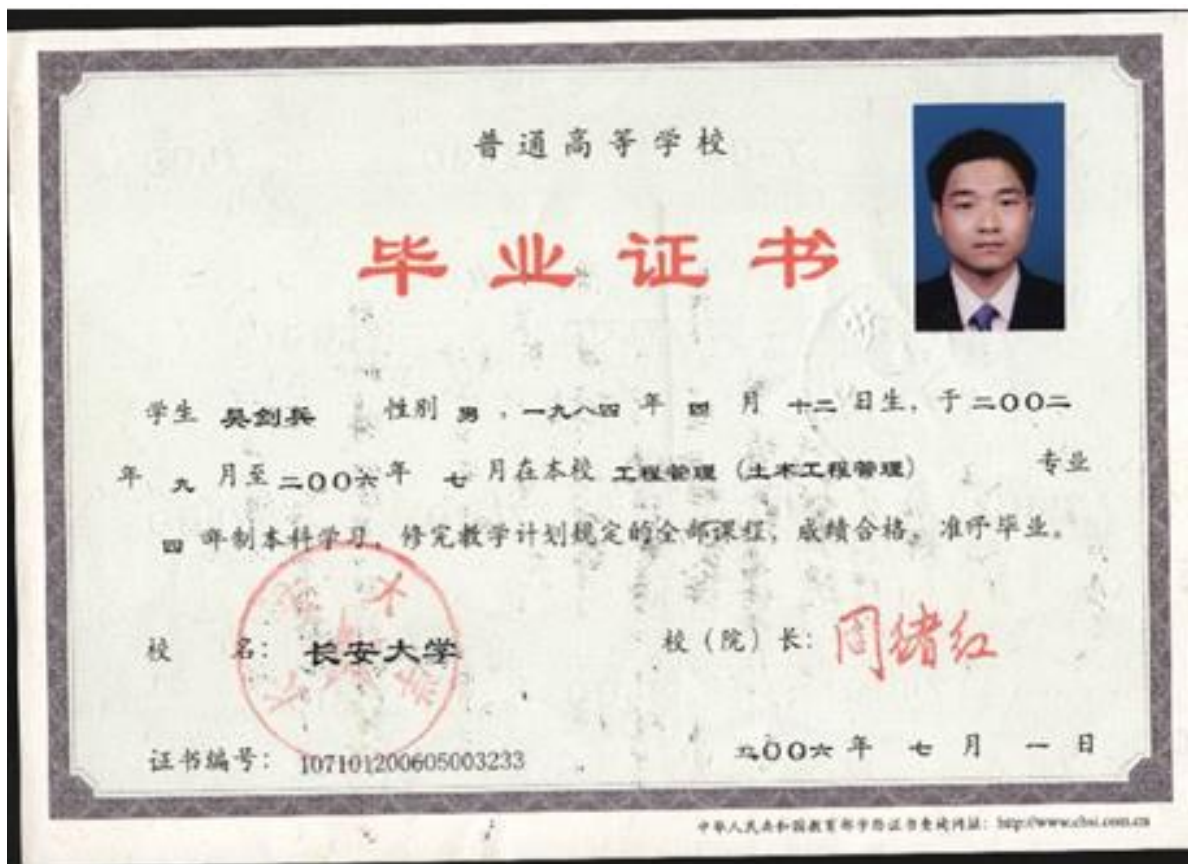 普通高等学校
毕业证书
学生 吴剑兵 性别 男，一九八四 年 四 月 十二 日生，于 二〇〇二
年 九 月至 二〇〇六 年 七 月在本校 工程管理（土木工程管理） 专业
四 年制本科学习，修完教学计划规定的全部课程，成绩合格，准予毕业。
校 名： 长安大学 校（院）长： 周绪红
证书编号： 107101200605003233 二〇〇六 年 七 月 一 日
中华人民共和国教育部学历证书查询网址：http://www.chsi.com.cn